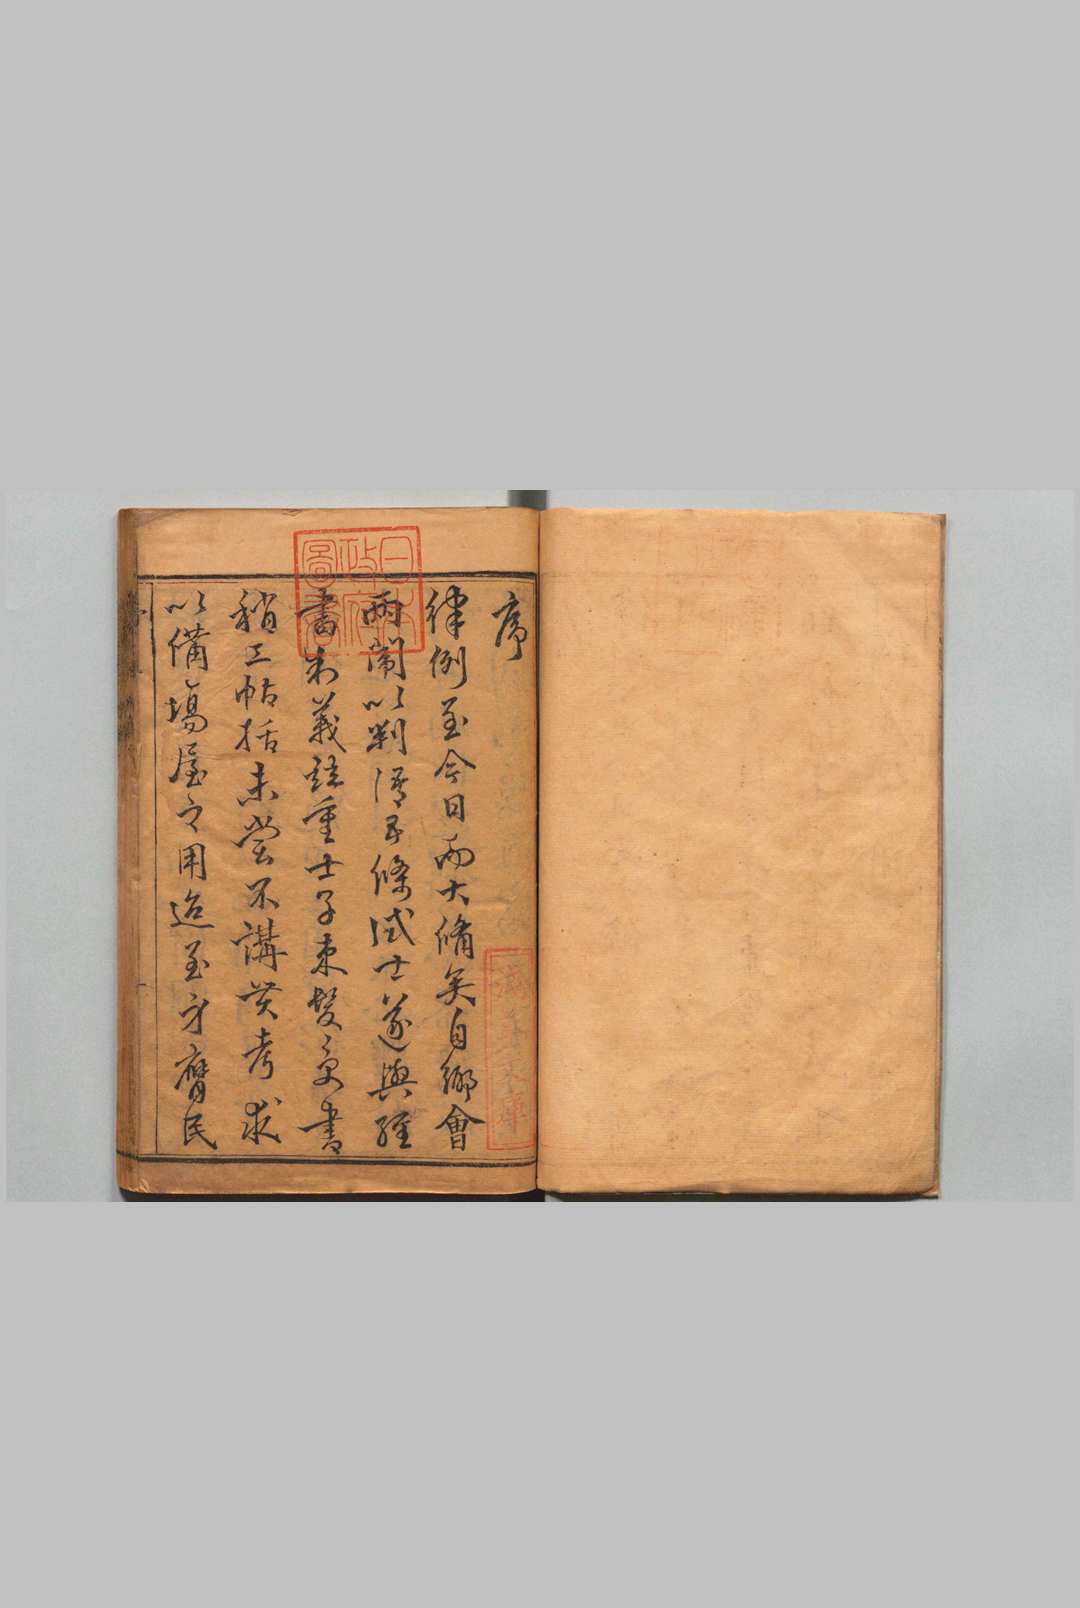 序
律例至今日而大脩矣自鄉會
兩闈以判語五條試士遂與經
書制義竝重士子束髮受書
稍工帖括未嘗不講貫考求
以備場屋之用迨至身膺民
日本
政府
圖書
淺草文庫